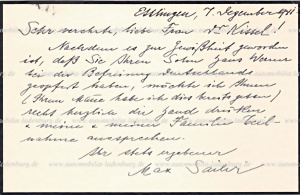 Esslingen, 7. Dezember 1941
Sehr verehrte, liebe Frau Dr Kissel!
Nachdem es zur Gewißheit geworden
ist, daß Sie Ihren Sohn Hans Werner
bei der Befreiung Deutschlands
geopfert haben, möchte ich Ihnen
(Ihrem Manne habe ich dies bereits getan)
recht herzlich die Hand drücken
& meine & meiner Familie Teil-
nahme aussprechen.
Ihr stets ergebener
Max Sailer